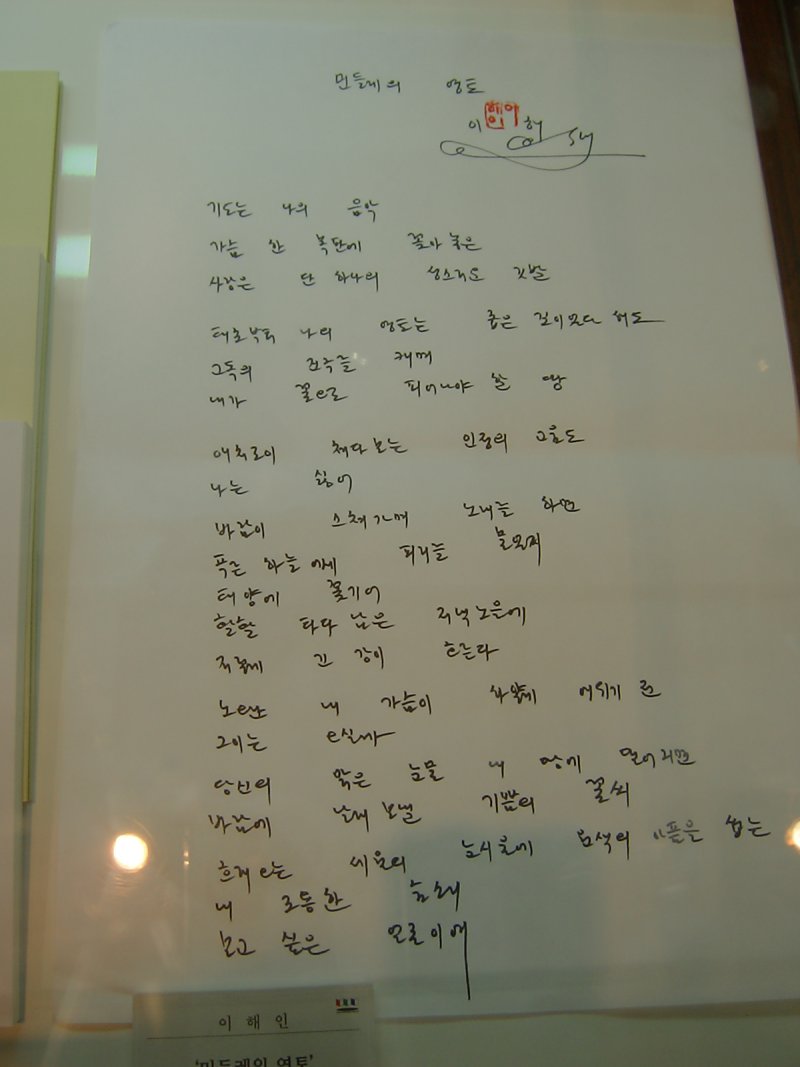 민들레의 영토
이해인
이 해 인
기도는 나의 음악
가슴 한 복판에 꽂아 놓은
사랑은 단 하나의 성스러운 깃발
태초부터 나의 영토는 좁은 길이었다 해도
고독의 진주를 캐며
내가 꽃으로 피어나야 할 땅
애처로이 쳐다보는 인정의 고움도
나는 싫어
바람이 스쳐가며 노래를 하면
푸른 하늘에게 피리를 불었지
태양에 쫓기어
활활 타다 남은 저녁노을에
저렇게 긴 강이 흐른다
노오란 내 가슴이 하얗게 여위기 전
그이는 오실까
당신의 맑은 눈물 내 땅에 떨어지면
바람에 날려 보낼 기쁨의 꽃씨
흐려오는 세월의 눈시울에 원색의 아픔을 씹는
내 조용한 숨소리
보고 싶은 얼굴이여
이 해 인
'민들레의 영토'